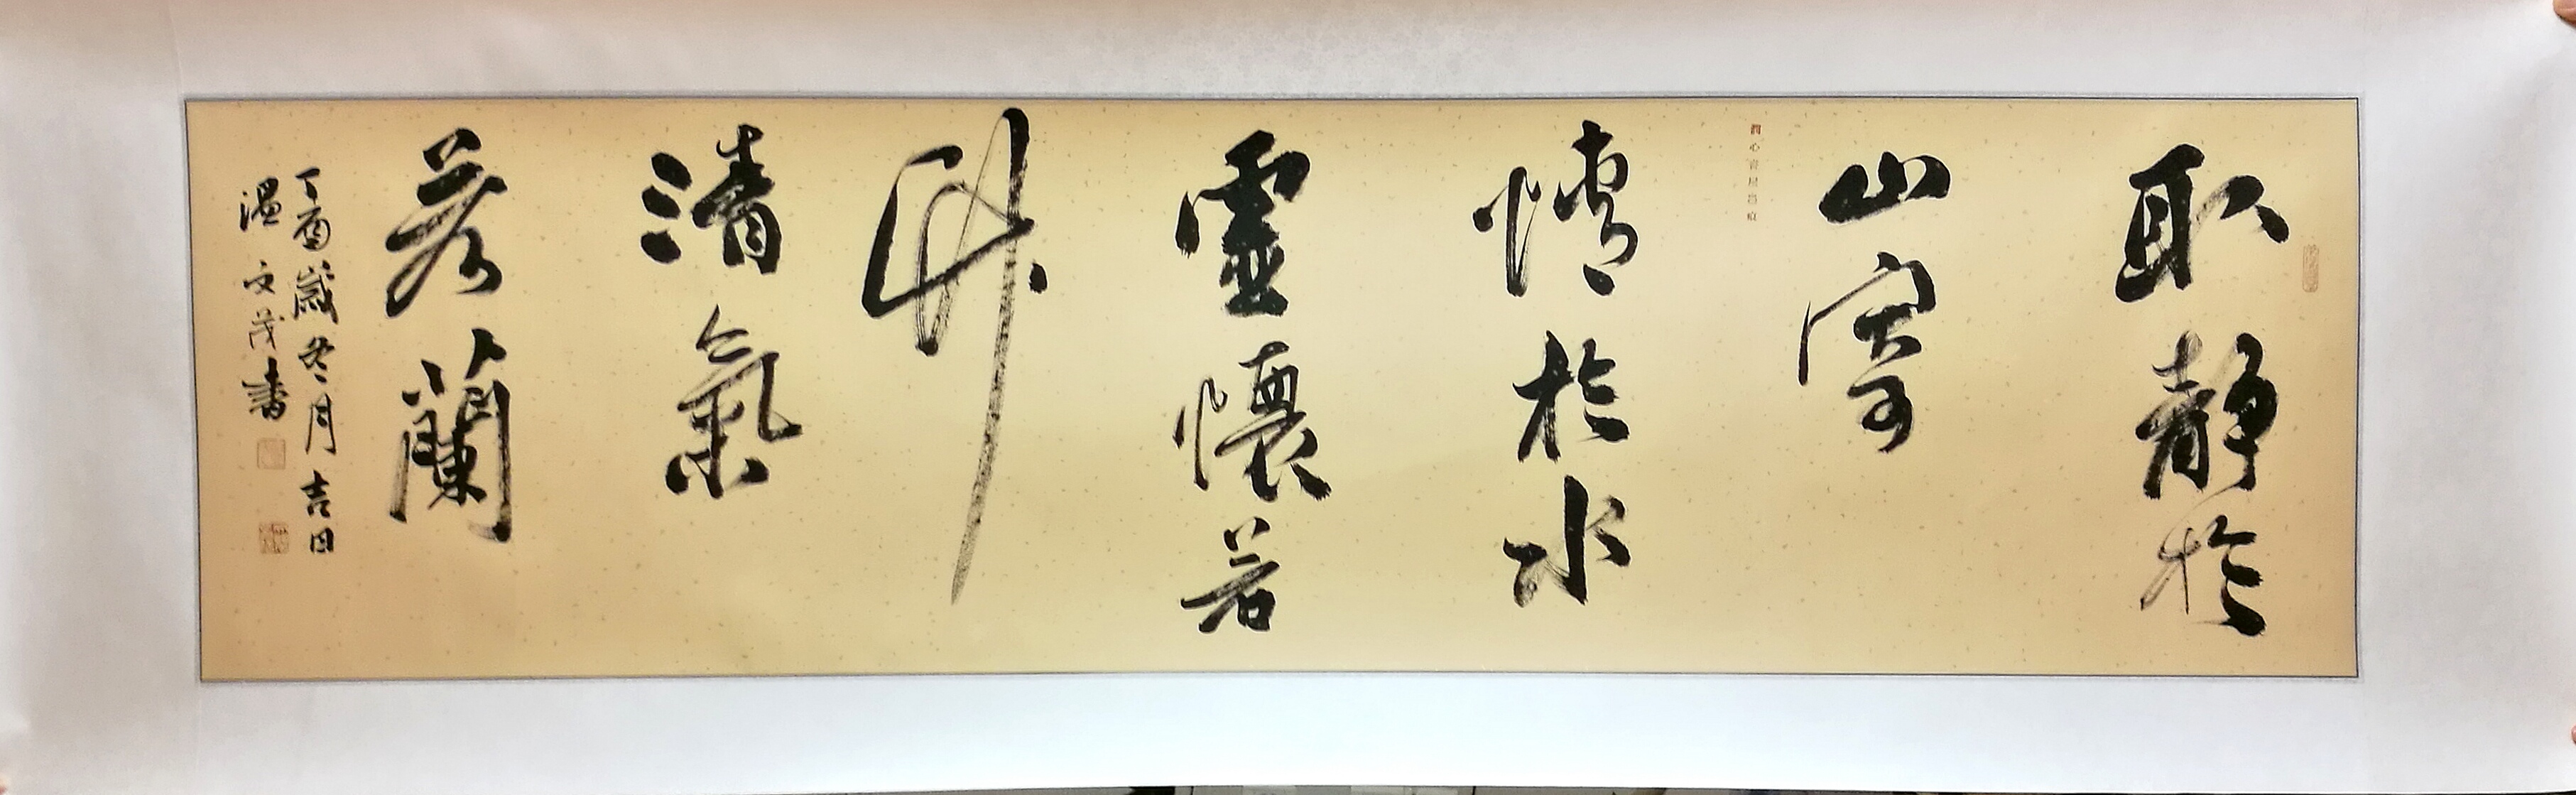 取靜於
山寄
情於水
虛懷若
竹
清氣
若蘭
丁酉歲冬月吉日
溫文茂書